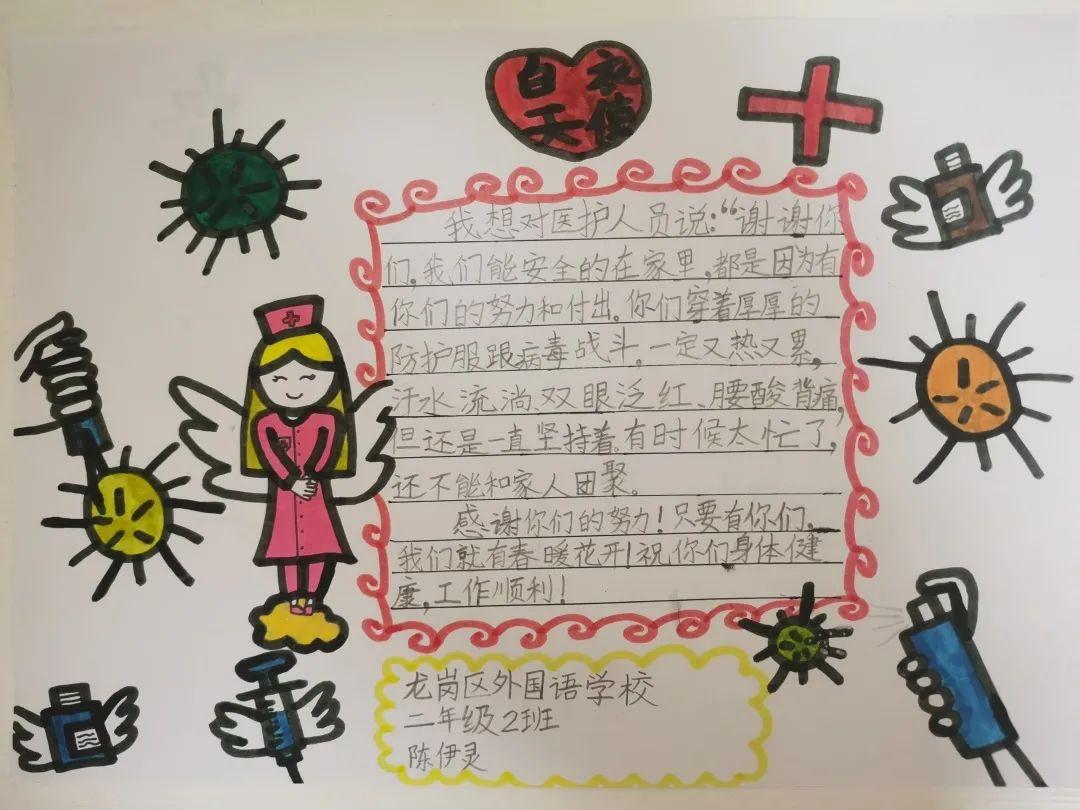 白衣
天使
我想对医护人员说：“谢谢你
们，我们能安全的在家里，都是因为有
你们的努力和付出。你们穿着厚厚的
防护服跟病毒战斗，一定又热又累，
汗水流淌、双眼泛红、腰酸背痛，
但还是一直坚持着。有时候太忙了，
还不能和家人团聚。
感谢你们的努力！只要有你们，
我们就有春暖花开！祝你们身体健
康，工作顺利！
龙岗区外国语学校
二年级2班
陈伊灵